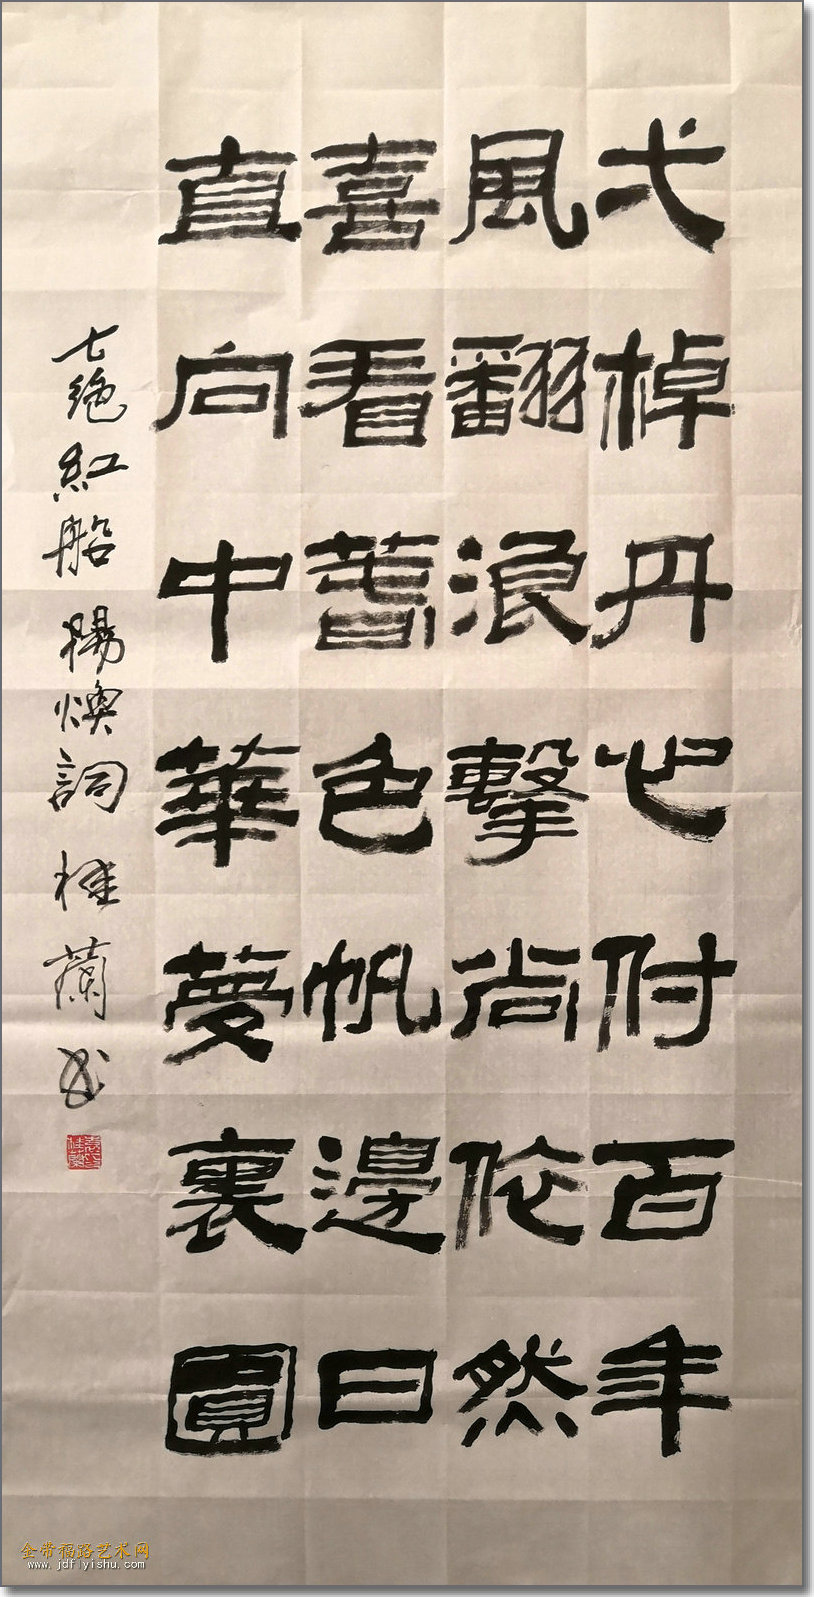 弋棹丹心付百年
風翻浪擊尚依然
喜看色帆邊日
直向中華夢裏圓
七絶紅船 楊煥詞 桂蘭书
福路艺术网
www.jdflyishu.com